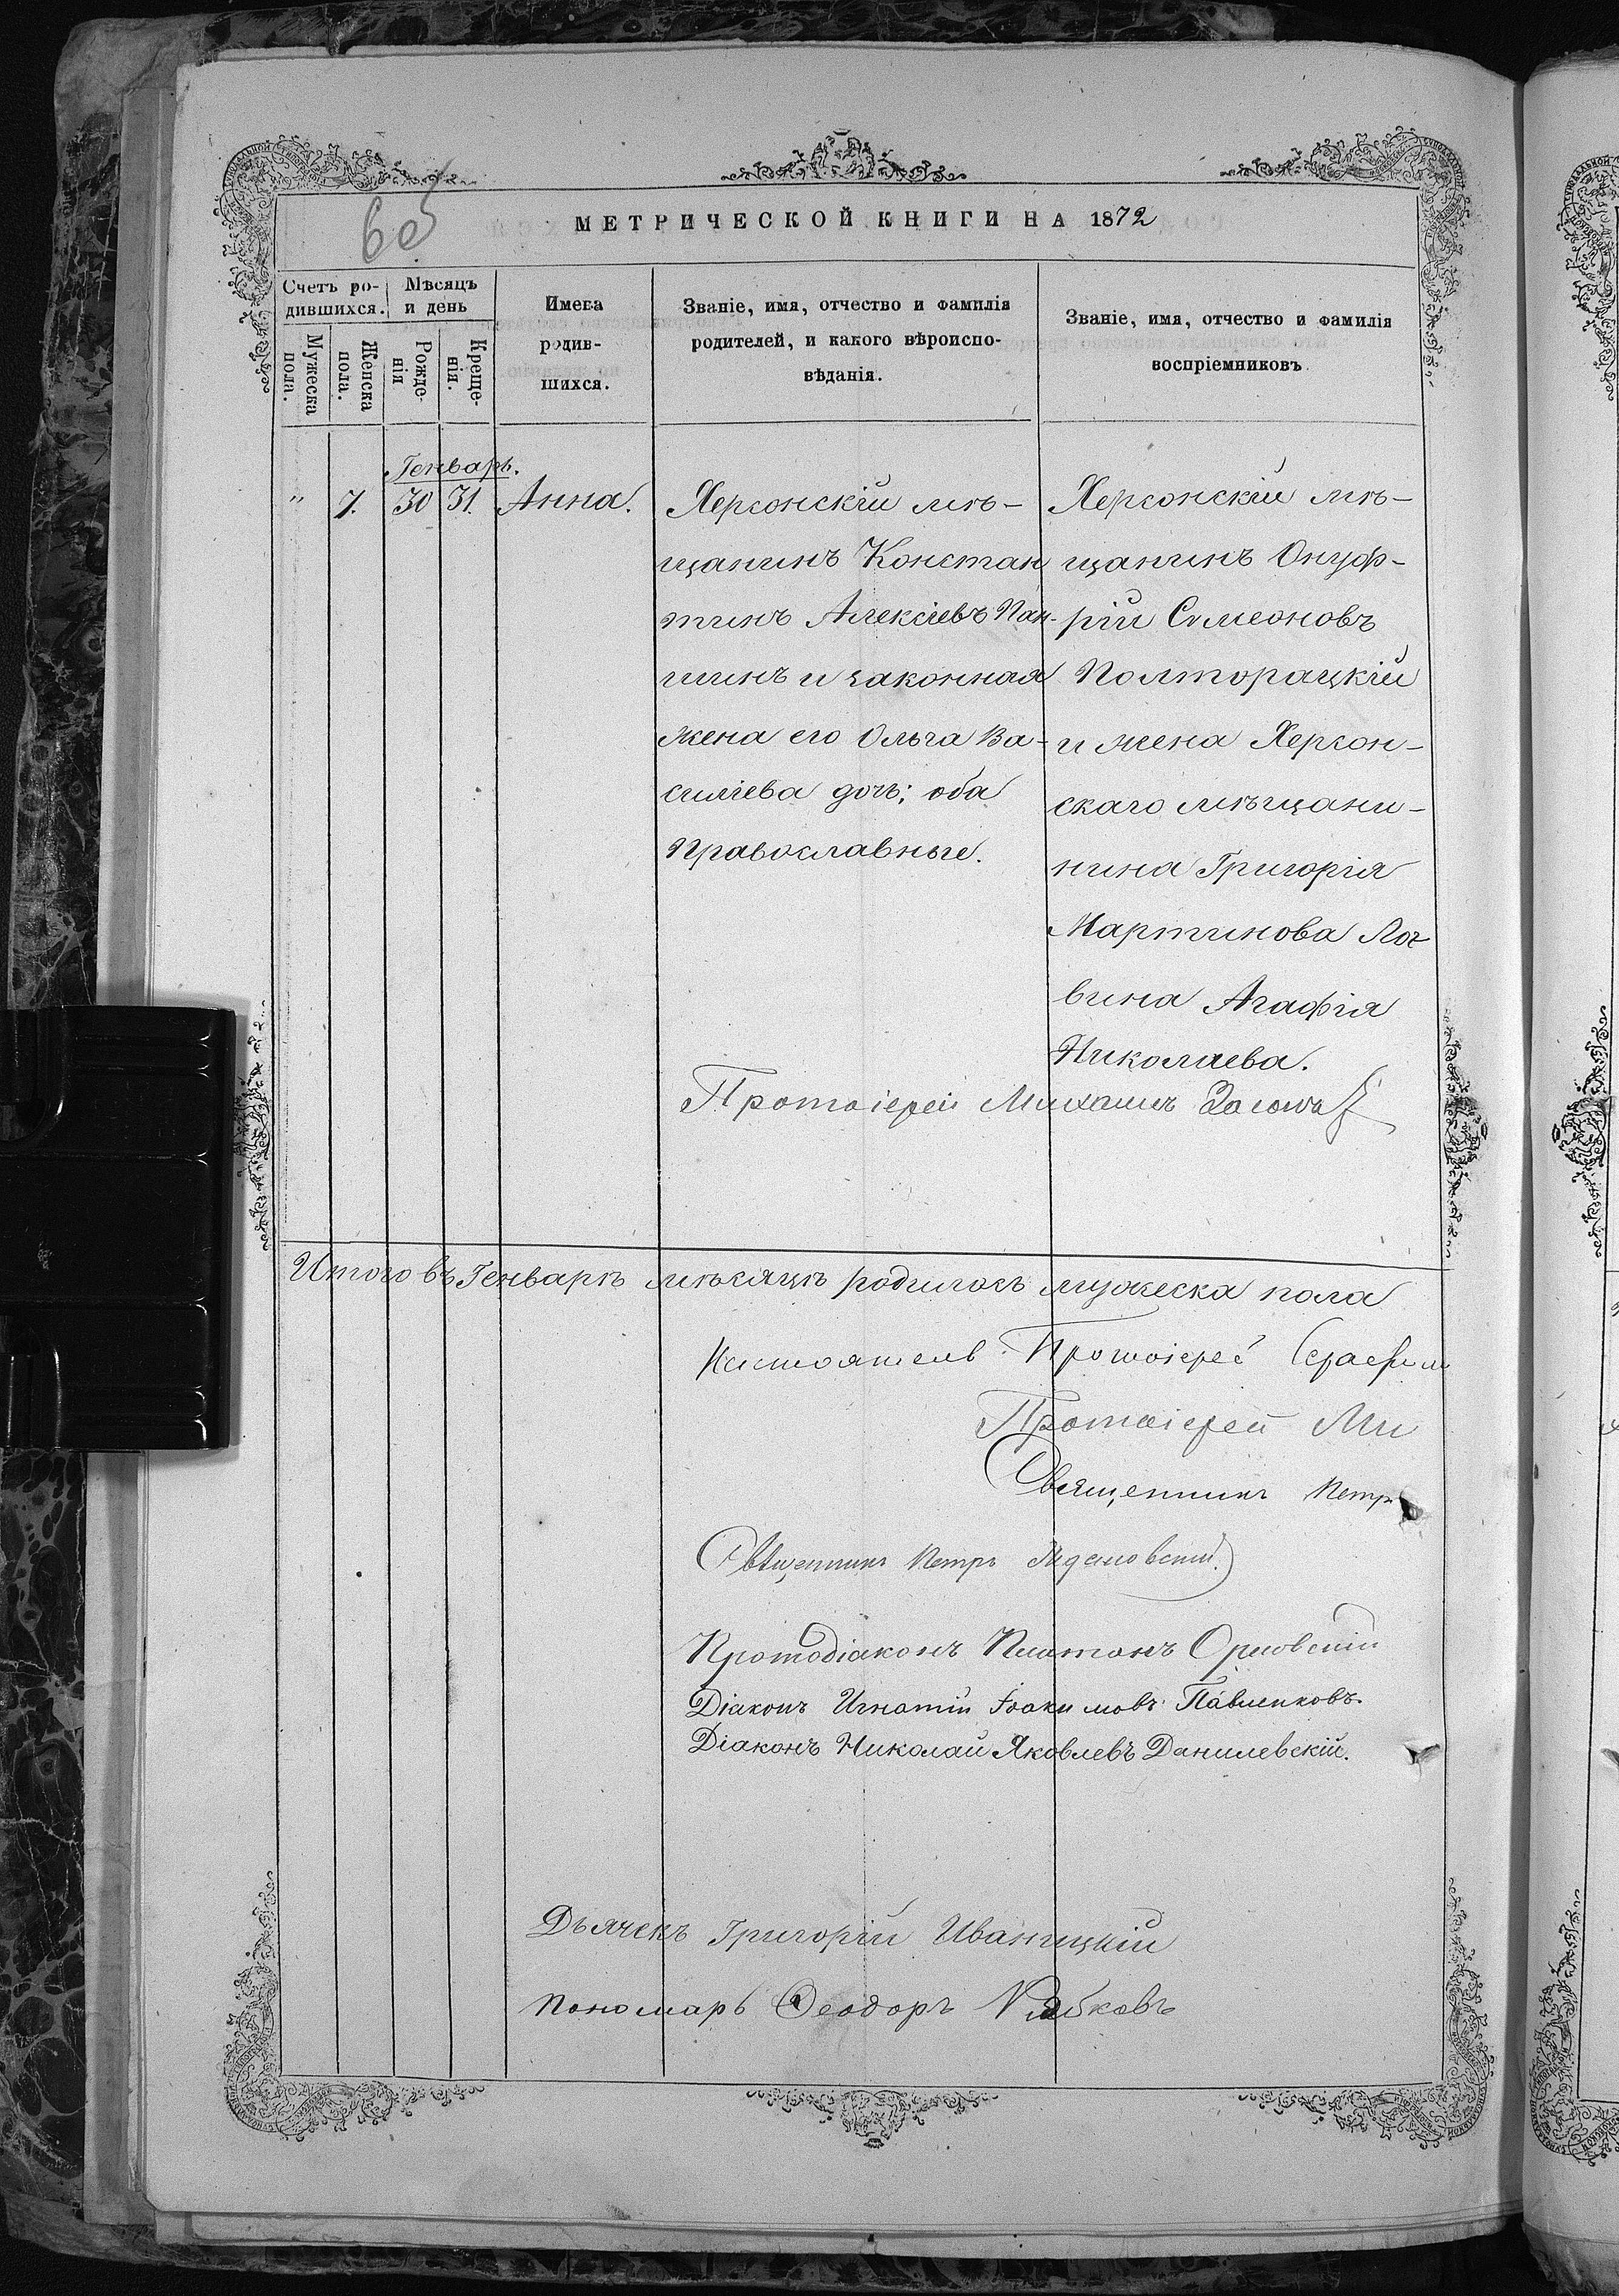 МЕТРИЧЕСКОЙ КНИГИ НА 1872
Счетъ ро-
дившихся.
Мужеска
пола.
Женска
пола.
Мѣсяцъ
и день
Рожде-
нія
Креще-
нія.
Имена
родив-
шихся.
Званіе, имя, отчество и фамилія
родителей, и какого вѣроиспо-
вѣданія.
Званіе, имя, отчество и фамилія
воспріемниковъ
Генварь.
" 7. 30 31. Анна.
Херсонскій мѣ-
щанинъ Констан
тинъ Алексѣевъ Пан-
шинъ и законная
жена его Ольга Ва-
силіева дочь; оба
Православные.
Херсонскій мѣ-
щанинъ Онуф-
рій Симеоновъ
Полторацкій
и жена Херсон-
скаго мѣщани-
нина Григорія
Мартинова Лог
вина Агафія
Николаева.
Протоіерей Михаилъ
Итого въ Генварѣ мѣсяцѣ родилось мужеска пола
Настоятель Протоіерей Серафим
Протоіерей Ми
Священникъ Петръ
Священникъ Петръ
Протодіаконъ Платонъ Орловскій
Діаконъ Игнатій Іоакимовъ Павленковъ.
Діаконъ Николай Яковлевъ Данилевскій.
Дьячекъ Григорій Иваницкій
Пономарь Ѳеодоръ Рябковъ